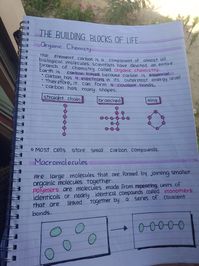 THE BUILDING BLOCKS OF LIFE
Organic Chemistry
The element carbon is a component of almost all
biological molecules. Scientists have devoted an entire
branch of chemistry called organic chemistry.
Earth is carbon based because carbon is essential
• Carbon has 4 electrons in its outermost energy level
• Therefore, it can form 4 covalent bonds.
• Carbon has many shapes.
straight chain
branched
ring
Most cells store small carbon compounds.
Macromolecules
Are large molecules that are formed by joining smaller
organic molecules together.
Polymers are molecules made from repeating units of
identical or nearly identical compounds called monomers
that are linked together by a series of covalent
bonds.